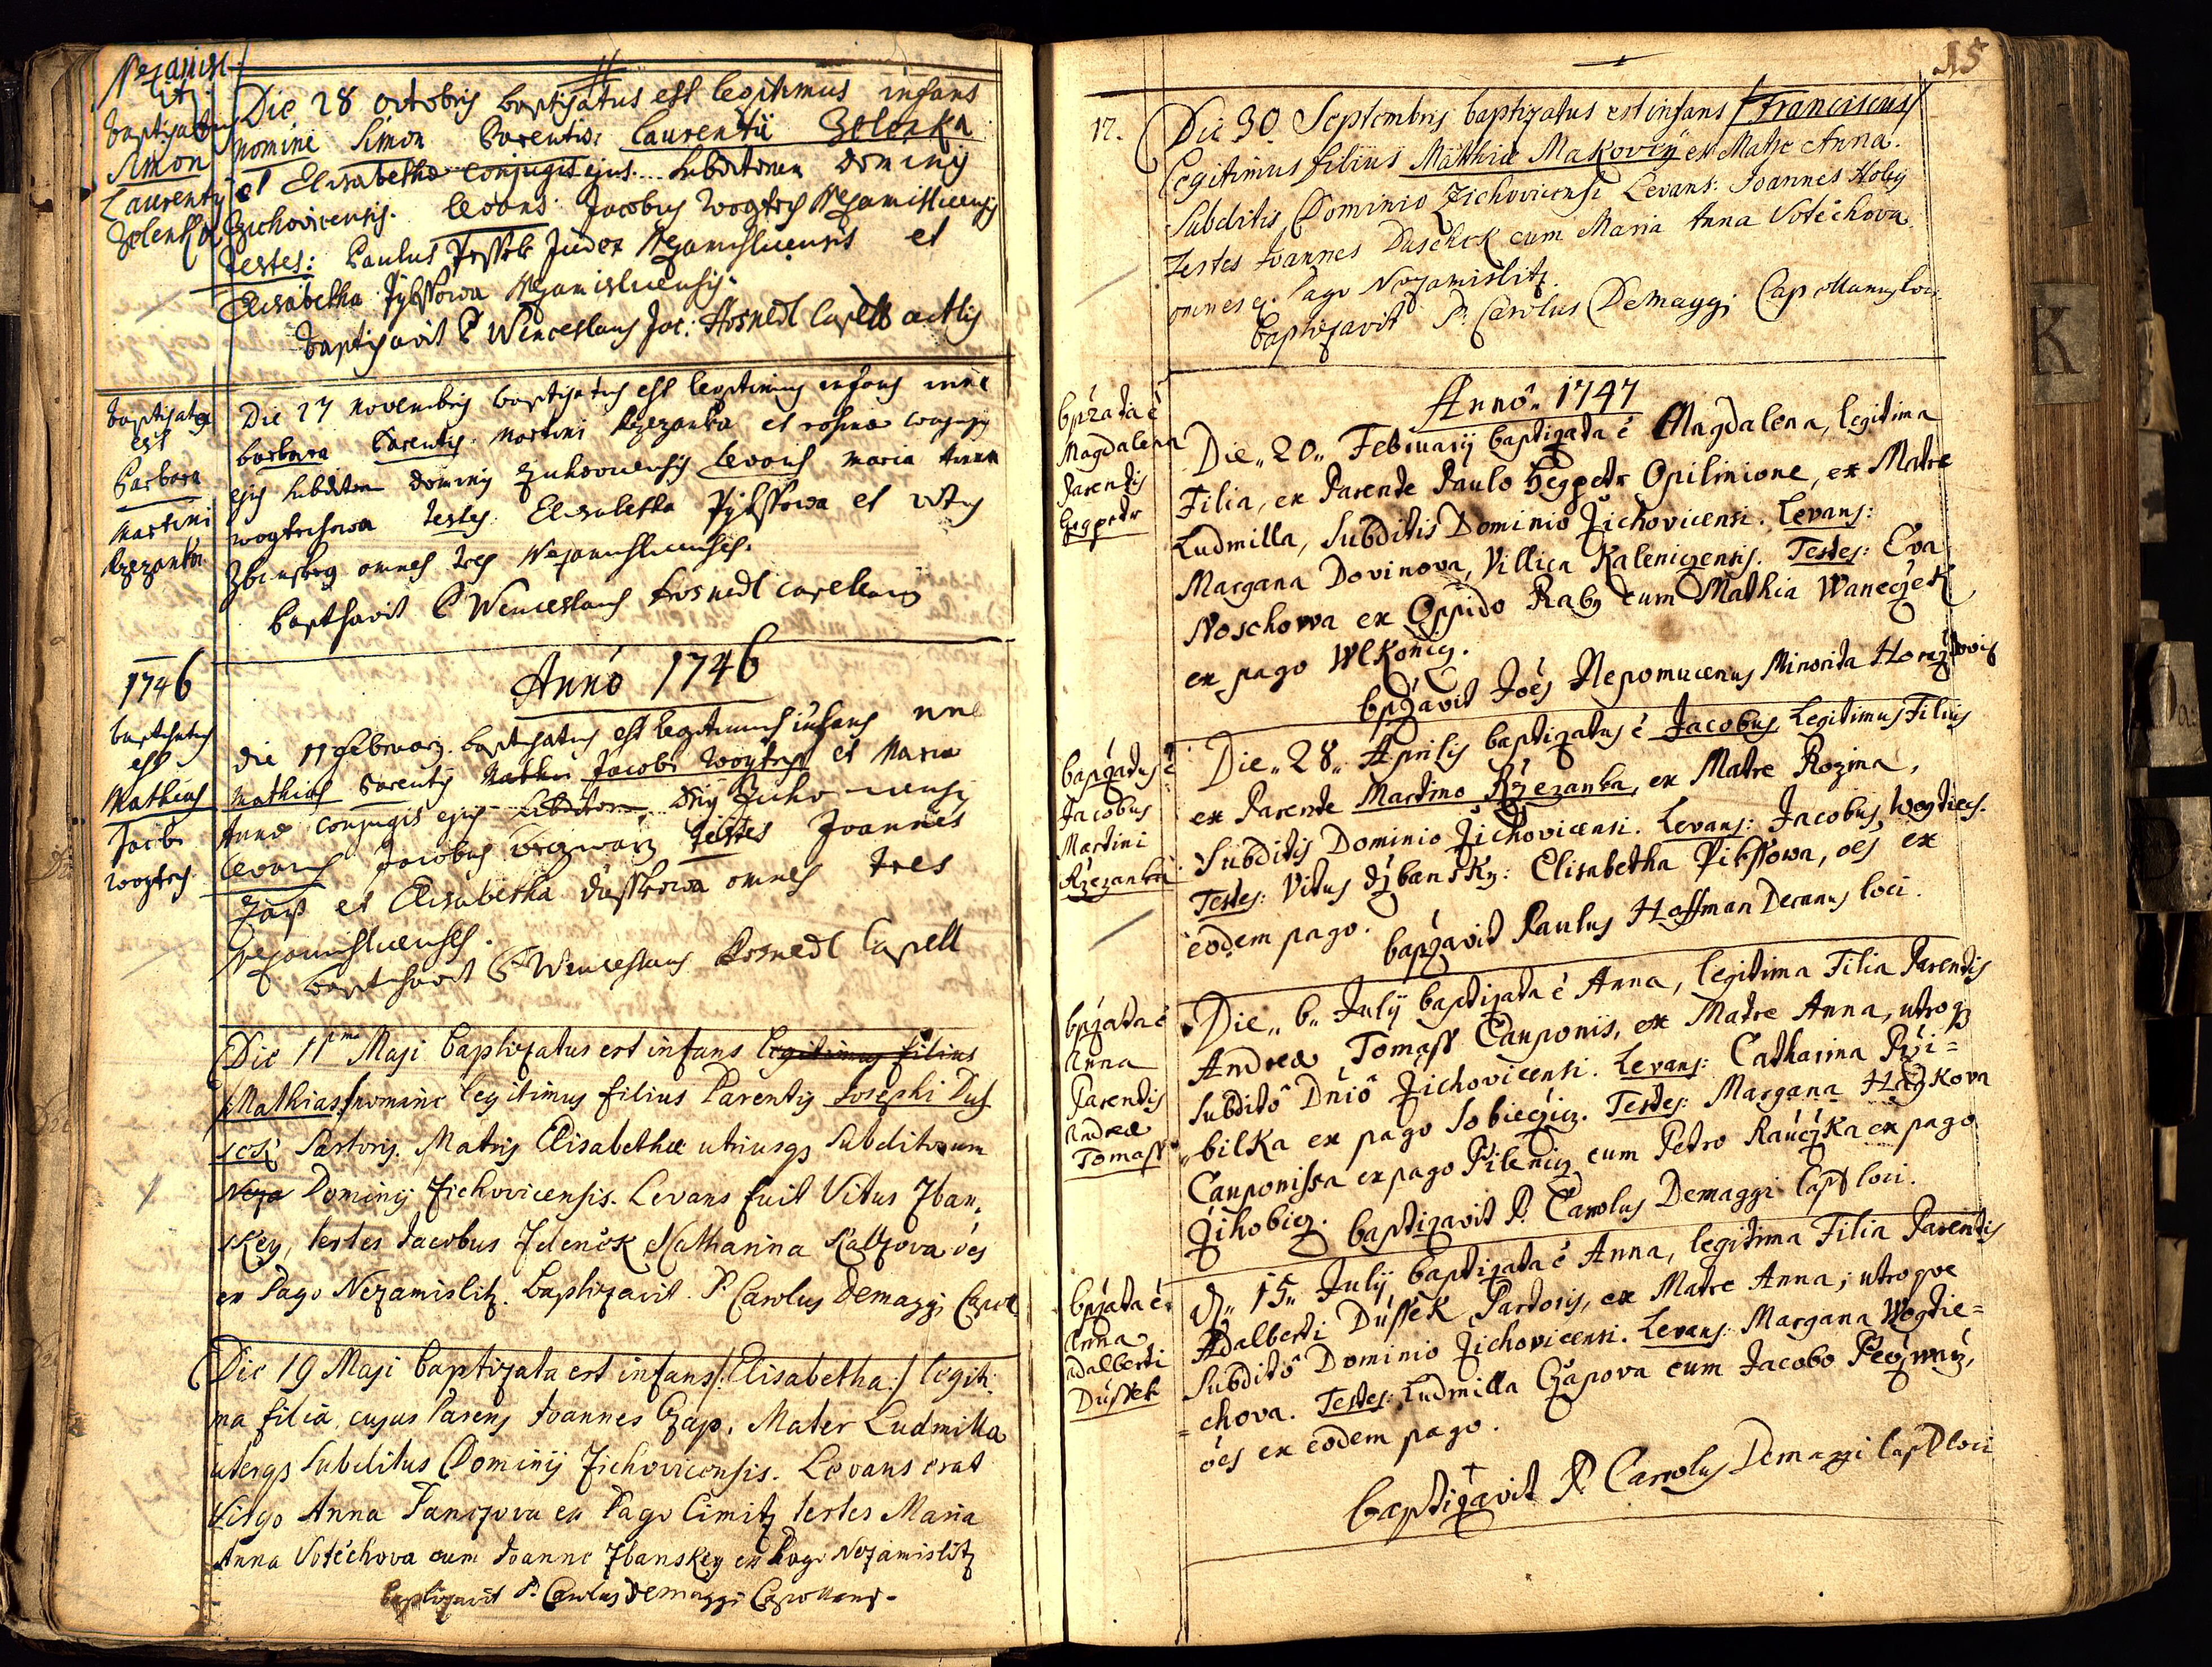 Nezamisl
itz
baptisatus
Simon
Laurentij
Zelenka
Die 28 octobris baptisatus est legitimus infans
nomine Simon Parentis: Laurentii Zelenka
et Elisabethæ conjugis ejus subditorum Dominij
Zichovicensis. levans Jacobus Wogtech Nezamislicensis
testes: Paulus Judex Nezamislicensis et
Elisabetha Pybssowa Nezamislicensis.
baptisavit P Wenceslaus Jos: Hosnedl Capell
baptisata
est
Barbara
Martini
Rzezanka
Die 27 novembris baptisatus est legitimus infans nne
barbara Parentis Martini Rzezanka et rosinæ conjugis
ejus subditorum Dominij Zichovicensis levans maria Anna
wogtechowa testes Elisabetha Pybssowa et vitus
Zbanskey omnes tres Nezamislicenses.
baptisavit P Wenceslaus Hosnedl capellanus
1746
baptisatus
est
Mathias
Jacobi
wogtech
Anno 1746
die 11 february baptisatus est legitimus infans nne
mathias Parentis Mathei Jacobi Wogtech et Mariæ
Annæ conjugis ejus subditorum Dnij Zichovicensis
levans Jacobus testes Joannes
et Elisabetha dusskowa omnes tres
Nezamislicenses.
baptisavit P Wenceslaus Hosnedl Capell
Die 11ma Maji baptizatus est infans legitimus filius
/Mathias/ nomine legitimus filius Parentis Josephi Dus
sek Sartoris. Matris Elisabethæ utriusqs Subditorum
Neza Dominij Zichovicensis. Levans fuit Vitus Zban,
skey, testes Jacobus Zelenek Catharina Kalzova oes
ex Pago Nezamislitz. baptizavit P. Carolus Demaggi Capel
Die 19 Maji baptizata est infans /:Elisabetha:/ legiti:
ma filia, cujus Parens Joannes Czap, Mater Ludmilla
uterqs Subditus Dominij Zichovicensis. Levans erat
Virgo Anna Panczova ex Pago Cimitz testes Maria
Anna Votechova cum Joanne Zbanskey ex Pago Nezamislitz
baptizavit P. Carolus Demaggi Capellanus.
15
17.
Die 30 Septembris baptizatus est infans /Franciscus/
legitimus filius Mathiæ Makoviy ex Matre Anna.
Subditis Dominio Zichovicensi Levans: Joannes Holey
Testes Joannes Duschek cum Maria Anna Votéchova
omnes ex Pago Nezamislitz
baptizavit P. Carolus Demaggi Capellanus loci
bpzata ē
Magdalena
Parentis
Gegpetr
Anno 1747
Die „20„ February baptizata ē Magdalena, legitima
Filia, ex Parente Paulo Hegpetr Opilinione, ex Matre
Ludmilla, Subditis Dominio Zichovicensi. Levans:
Margana Dovinova, Villica Kaleniczensis. Testes: Eva
Noschowa ex Oppido Raby cum Mathia Waneczek
ex pago Wlkonicz.
bpzavit Joes Nepomucenus Minorita Horazdovis
bapzatus ē
Jacobus
Martini
Rzezanka
Die „28„ Aprilis baptizatus ē Jacobus legitimus Filius
ex Parente Martino Rzezanka, ex Matre Rozina,
Subditis Dominio Zichovicensi. Levans: Jacobus Wogtiech.
Testes: Vitus dzbansky: Elisabetha Pibssowa, oes ex
eodem pago.
bapzavit Paulus Hoffman Decanus loci.
bpzata ē
Anna
Parentis
Andreæ
Tomass
Die „6„ July baptizata ē Anna, legitima Filia Parentis
Andreæ Tomass Cauponis, ex Matre Anna, utroqz
Subdito Dnio Zichovicensi. Levans: Catharina Przi=
bilka ex pago Sobieczicz. Testes: Margana Hazkova
Cauponissa ex pago Pilenicz cum Petro Rauczka ex pago
Zihobicz.
baptizavit P. Carolus Demaggi Capl loci.
bpzata ē
Anna
Adalberti
Dussek
d „15„ July baptizata ē Anna, legitima Filia Parentis
Adalberti Dussek Sartoris, ex Matre Anna; utroque
Subdito Dominio Zichovicensi. Levans: Margana Wogtie=
=chova. Testes: Ludmilla Czapova cum Jacobo
oes ex eodem pago.
baptizavit P. Carolus Demaggi Capl loci